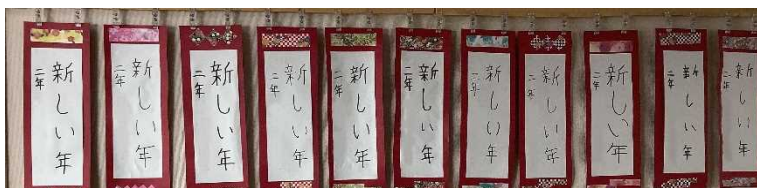 新しい年
二年
新しい年
二年
新しい年
二年
新しい年
二年
新しい年
二年
新しい年
二年
新しい年
二年
新しい年
二年
新しい年
二年
新しい年
二年
新しい年
二年